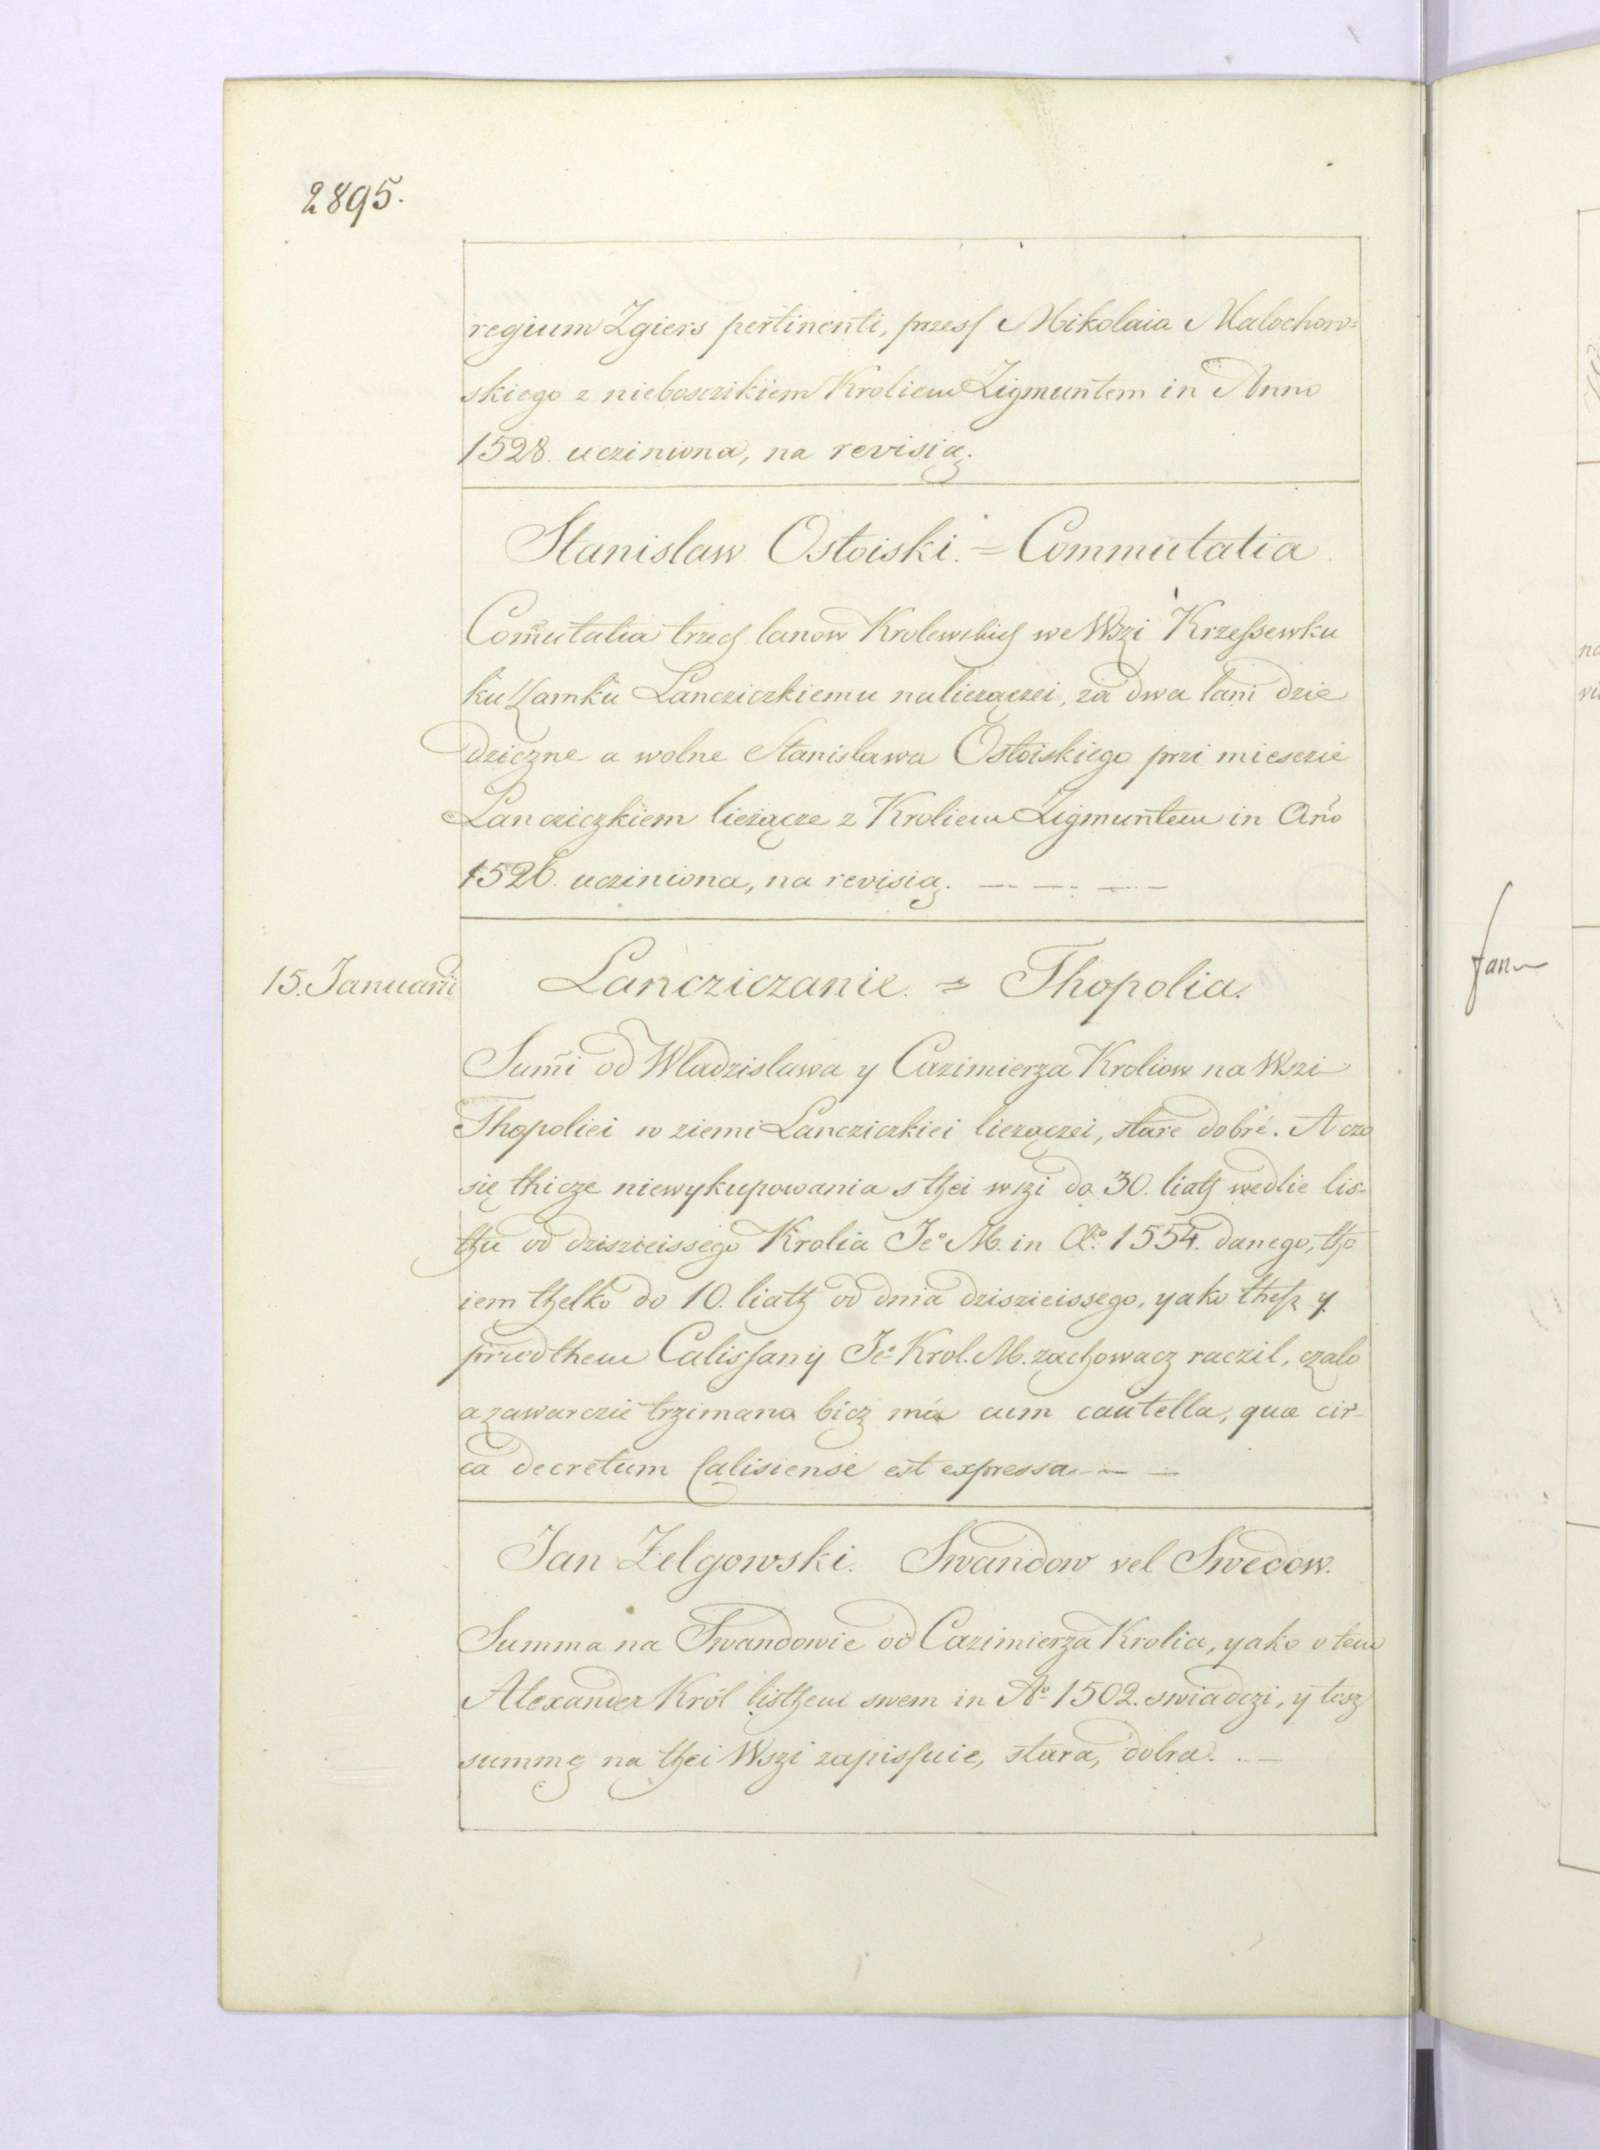 2895.
regium Zgiers pertinenti, przesſ Mikolaia Malochow=
skiego z nieboszczikiem Kroliem Zigmuntem in Anno
1528. ucziniona, na revisią.
Stanislaw Ostoiski. = Commutatia
Com̃utatia trzech lanow Krolewskich we Wszi Krzesſewku
ku Zamku Lancziczkiemu naliezączei, za dwa lani dzie
dziczne a wolne Stanislawa Ostoiskiego przi miesczie
Lancziczkiem liezącze z Kroliem Zigmuntem in Año
1526. ucziniona, na revisią.
15. Januarii
Lancziczanie. = Thopolia.
Sum̃i od Wladzislawa y Cazimierza Kroliow na Wszi
Thopoliei w ziemi Lancziczkiei liezączei, stare dobre. A czo
się thicze niewykupowania s thei wszi do 30. liath wedlie lis-
thu od dziszieissego Krolia Jeo M. in Ao. 1554. danego, tho
iem thelko do 10. liath od dnia dziszieissego, yako thesz y
przedthem Calisſany Jeo Krol. M. zachowacz raczil, czalo
a zawarczie trzimano bicz ma cum cautella, qua cir-
ca decretum Calisiense est expressa
Jan Zelgowski. Swandow vel Swedow.
Summa na Swandowie od Cazimierza Krolia, yako o tem
Alexander Król listhem swem in Ao 1502. swiadczi, y tesz
summę na thei Wszi zapisſuie, stara, dobra.